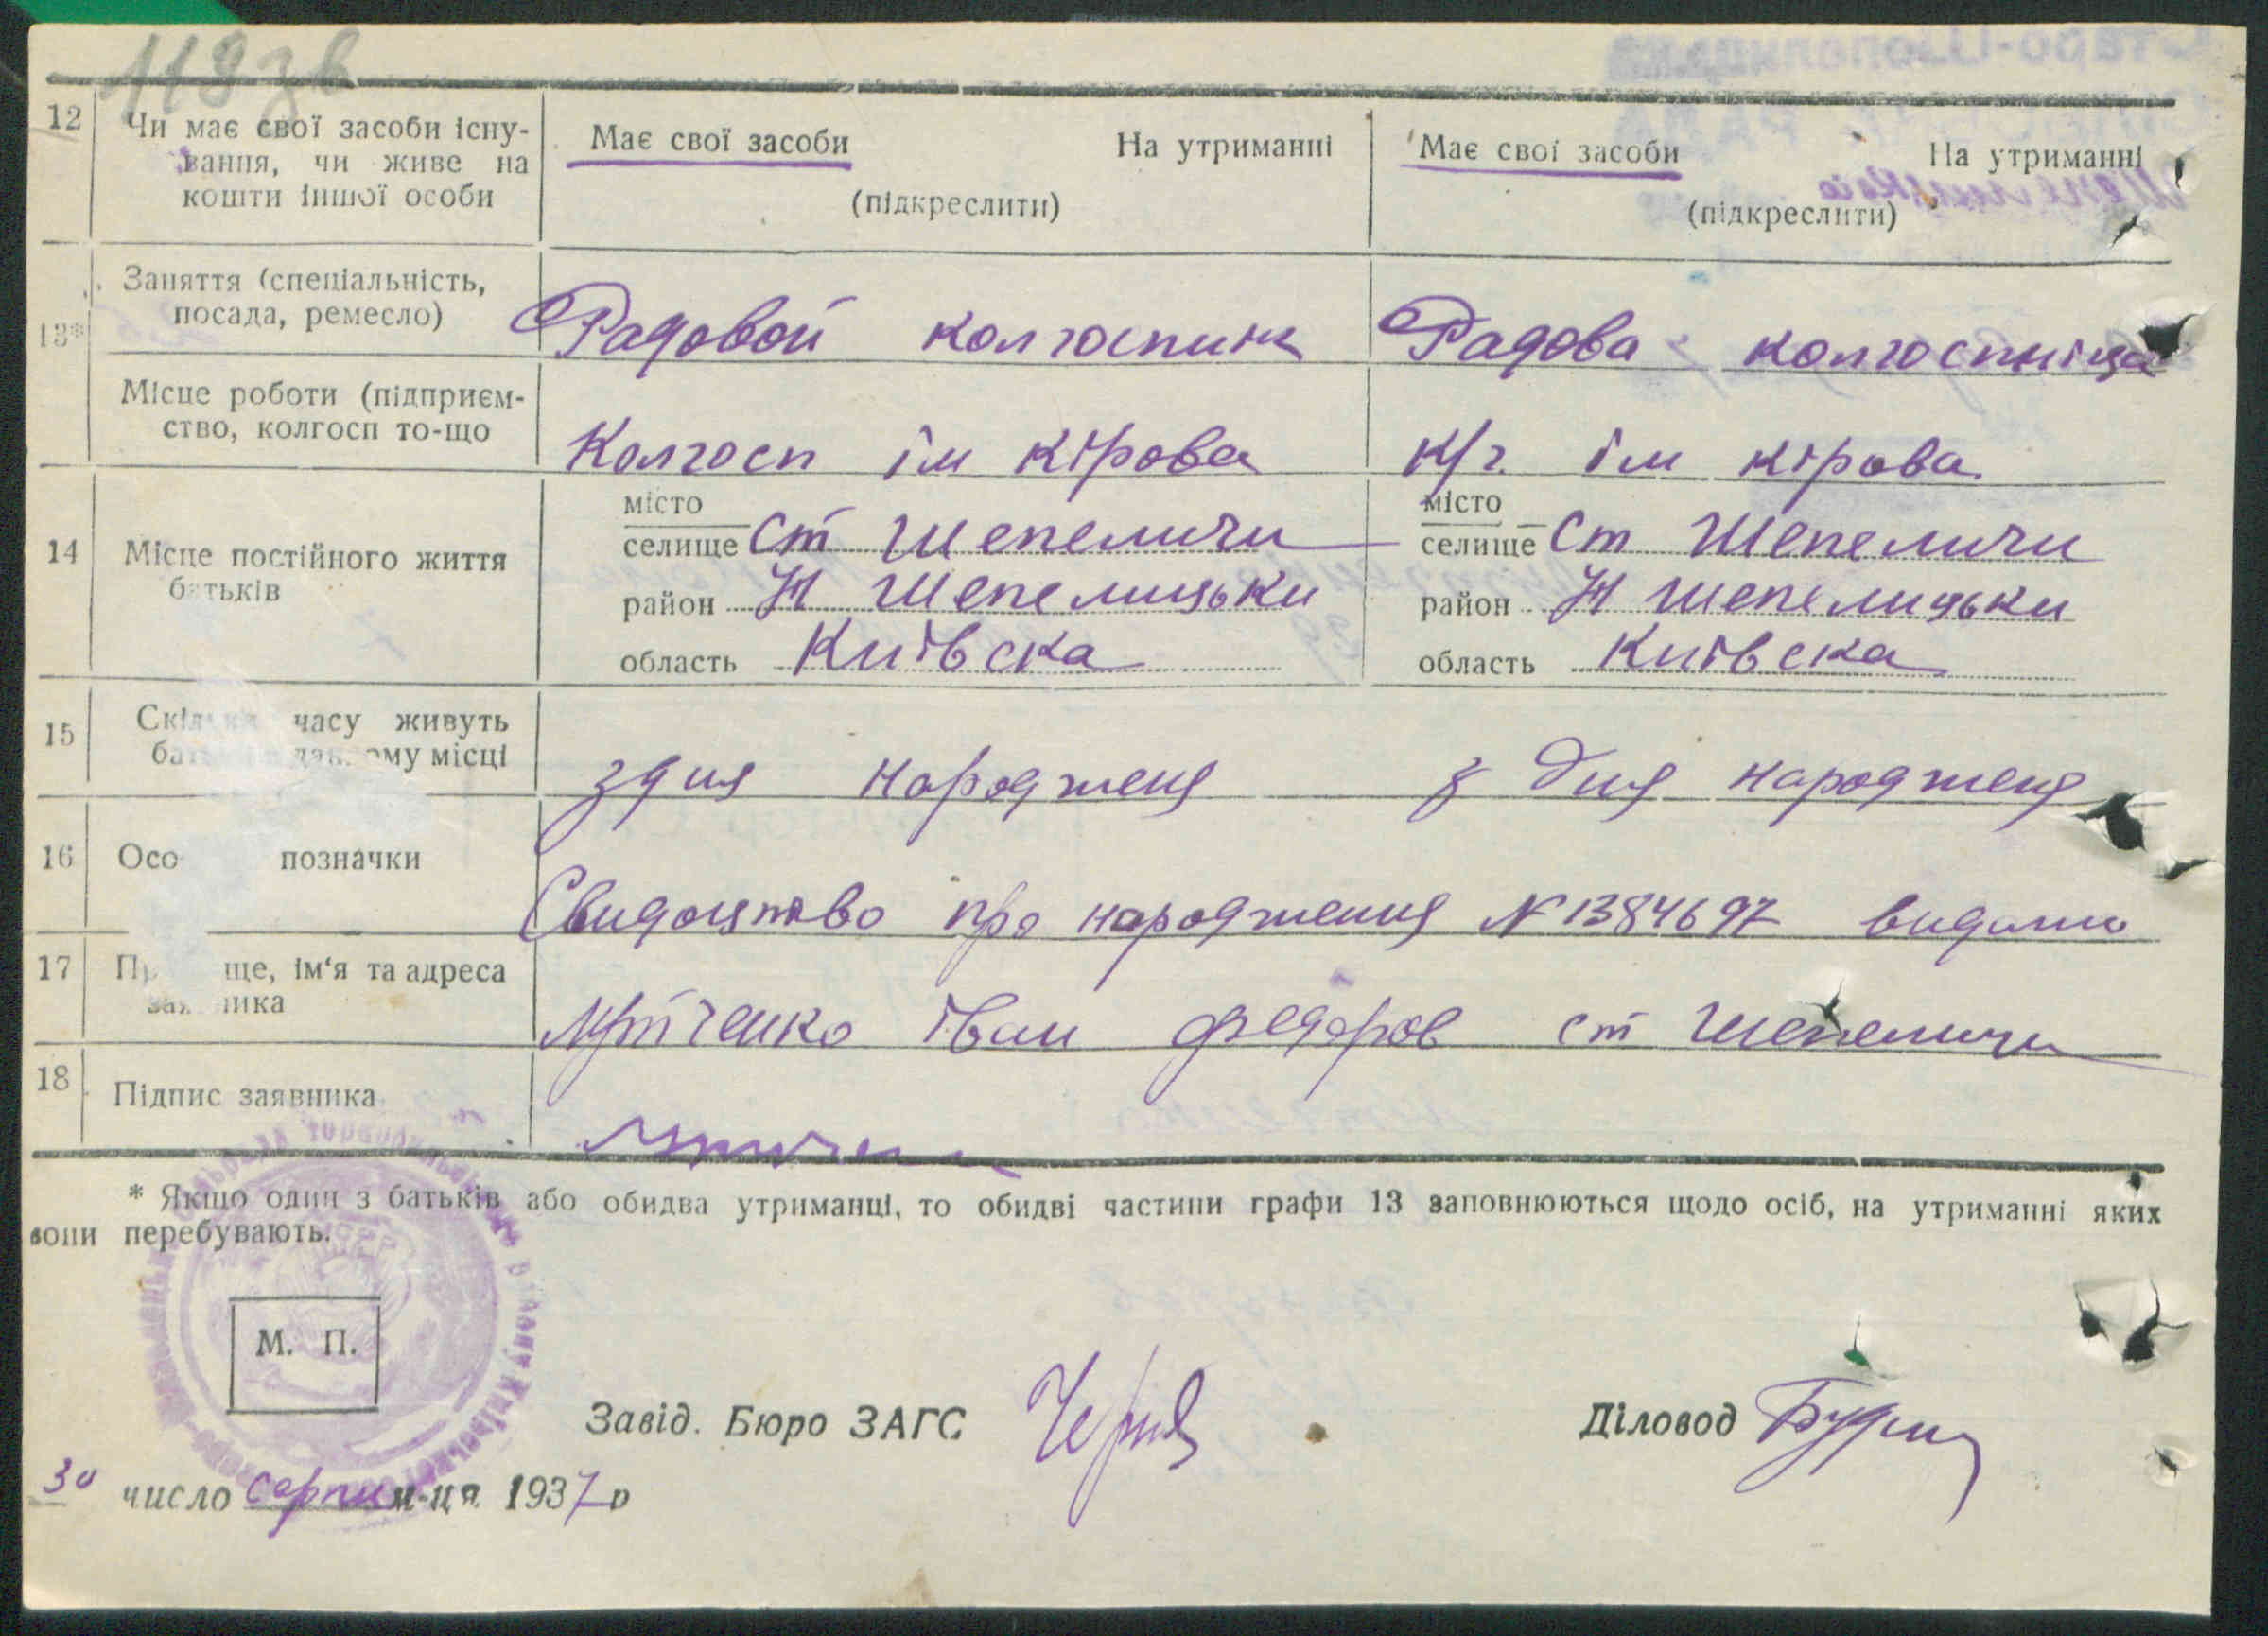 119 зв
12 Чи має свої засоби існу-
вання, чи живе на
кошти іншої особи
Має свої засоби На утриманні
(підкреслити)
Має свої засоби На утриманні
(підкреслити)
13*
Заняття (спеціальність,
посада, ремесло)
Радовой колгоспник
Радова колгоспниця
Місце роботи (підприєм-
ство, колгосп то-що
Колгосп ім кірова
к/г. ім кірова.
14 Місце постійного життя
батьків
місто
селище Ст Шепеличи
район Н Шепелицьки
область Київска
місто
селище Ст Шепеличи
район Н Шепелицьки
область Київска
15 Скільки часу живуть
часу живуть
ому місці
здня народженя
з дня народженя
16 Осо позначки
Свидоцтво про народження N 1384697 видано
17 Пр ще, ім'я та адреса
ника
Мутченко іван федоров ст Шепеличи
18 Підпис заявника
* Якщо один з батьків або обидва утриманці, то обидві частини графи 13 заповнюються щодо осіб, на утриманні яких
вони перебувають.
М. П.
Завід. Бюро ЗАГС
Діловод
30 число серпня м-ця 1937 р